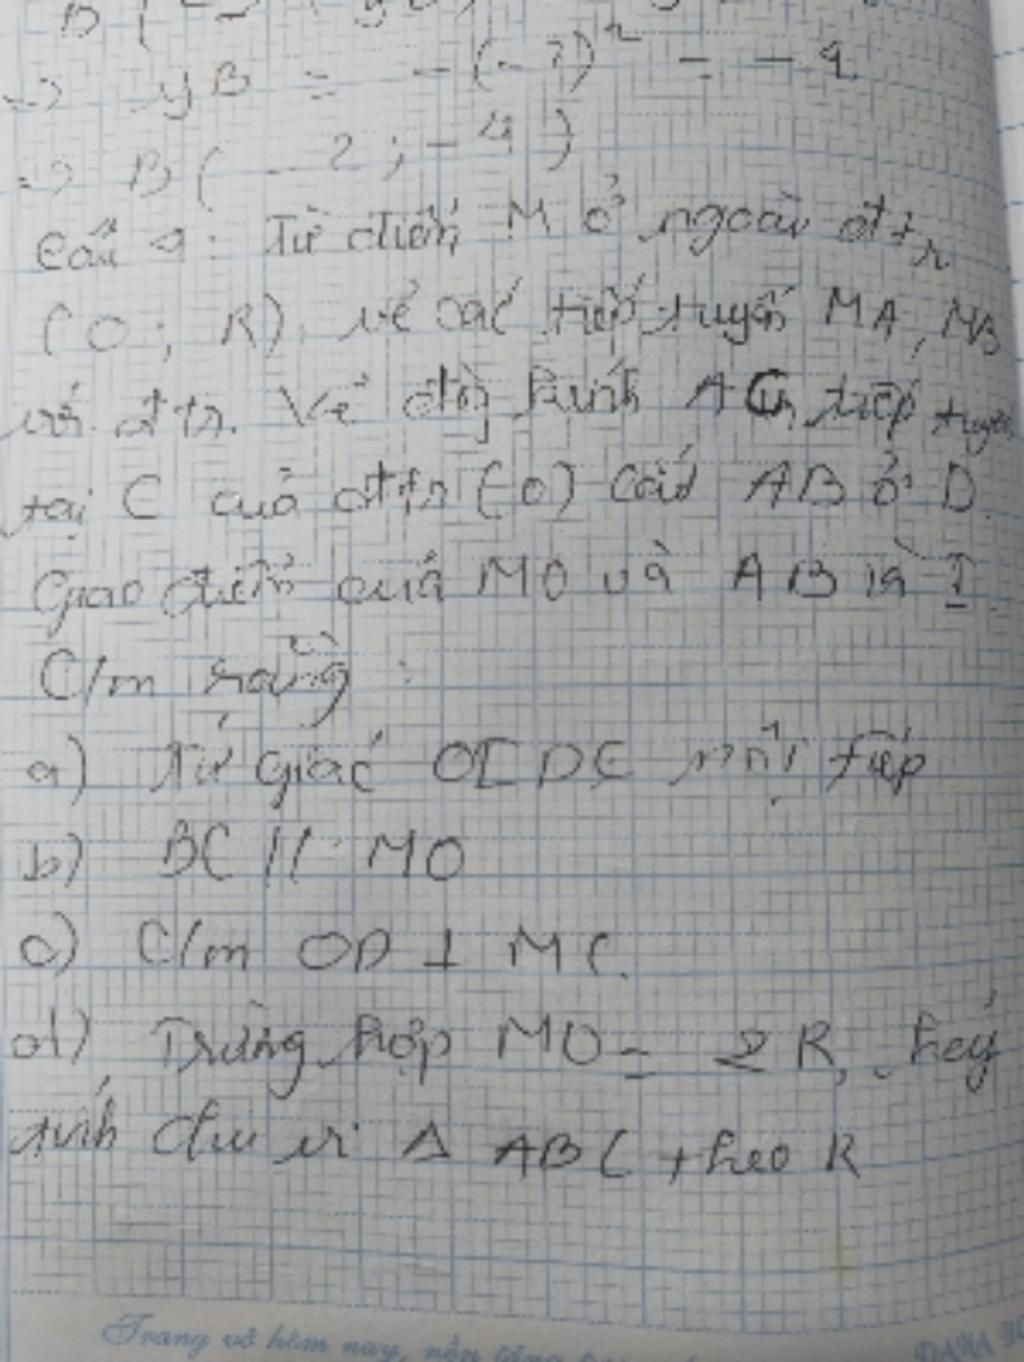 => yB = -(-2)² = -4
=> B(-2; -4)
Câu 9: Từ điểm M ở ngoài đtr
(O; R), vẽ các tiếp tuyến MA, MB
với đtr. Vẽ đg kính AC, tiếp tuyến
tại C của đtr (O) cắt AB ở D.
Giao điểm của MO và AB là I
C/m rằng:
a) Tứ giác OIDC nội tiếp
b) BC // MO
c) C/m OD ⊥ MC
d) Trường hợp MO = 2R, hãy
tính chu vi Δ ABC theo R
Trang vở hôm nay, nền tảng